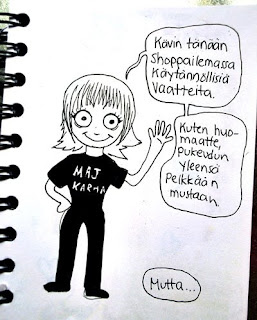 Kävin tänään
Shoppailemassa
käytännöllisiä
vaatteita.
Kuten huo-
maatte,
pukeudun
yleensä
pelkkään
mustaan.
MAJ
KARMA
Mutta...